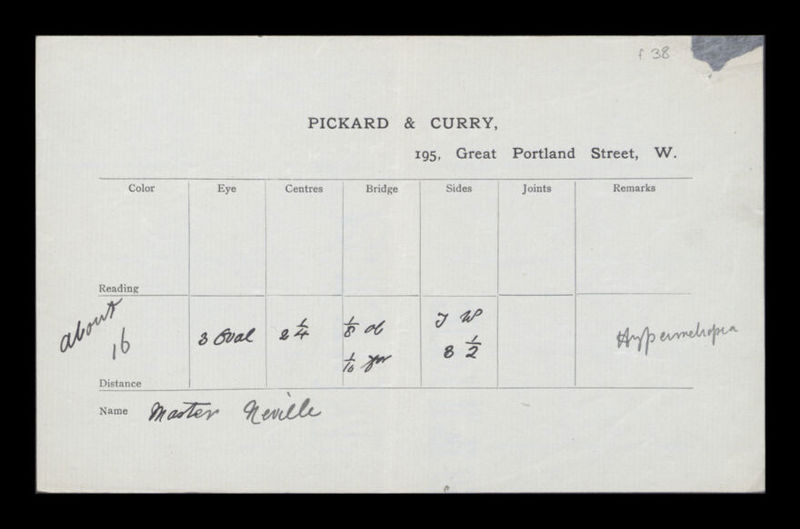 f 38
PICKARD & CURRY,
195, Great Portland Street, W.
Color Eye Centres Bridge Sides Joints Remarks
Reading
about 16 3 Oval 2 1/4 1/8 ob 1/10 J W 8 1/2 Hypermetropia
Distance
Name Master Neville